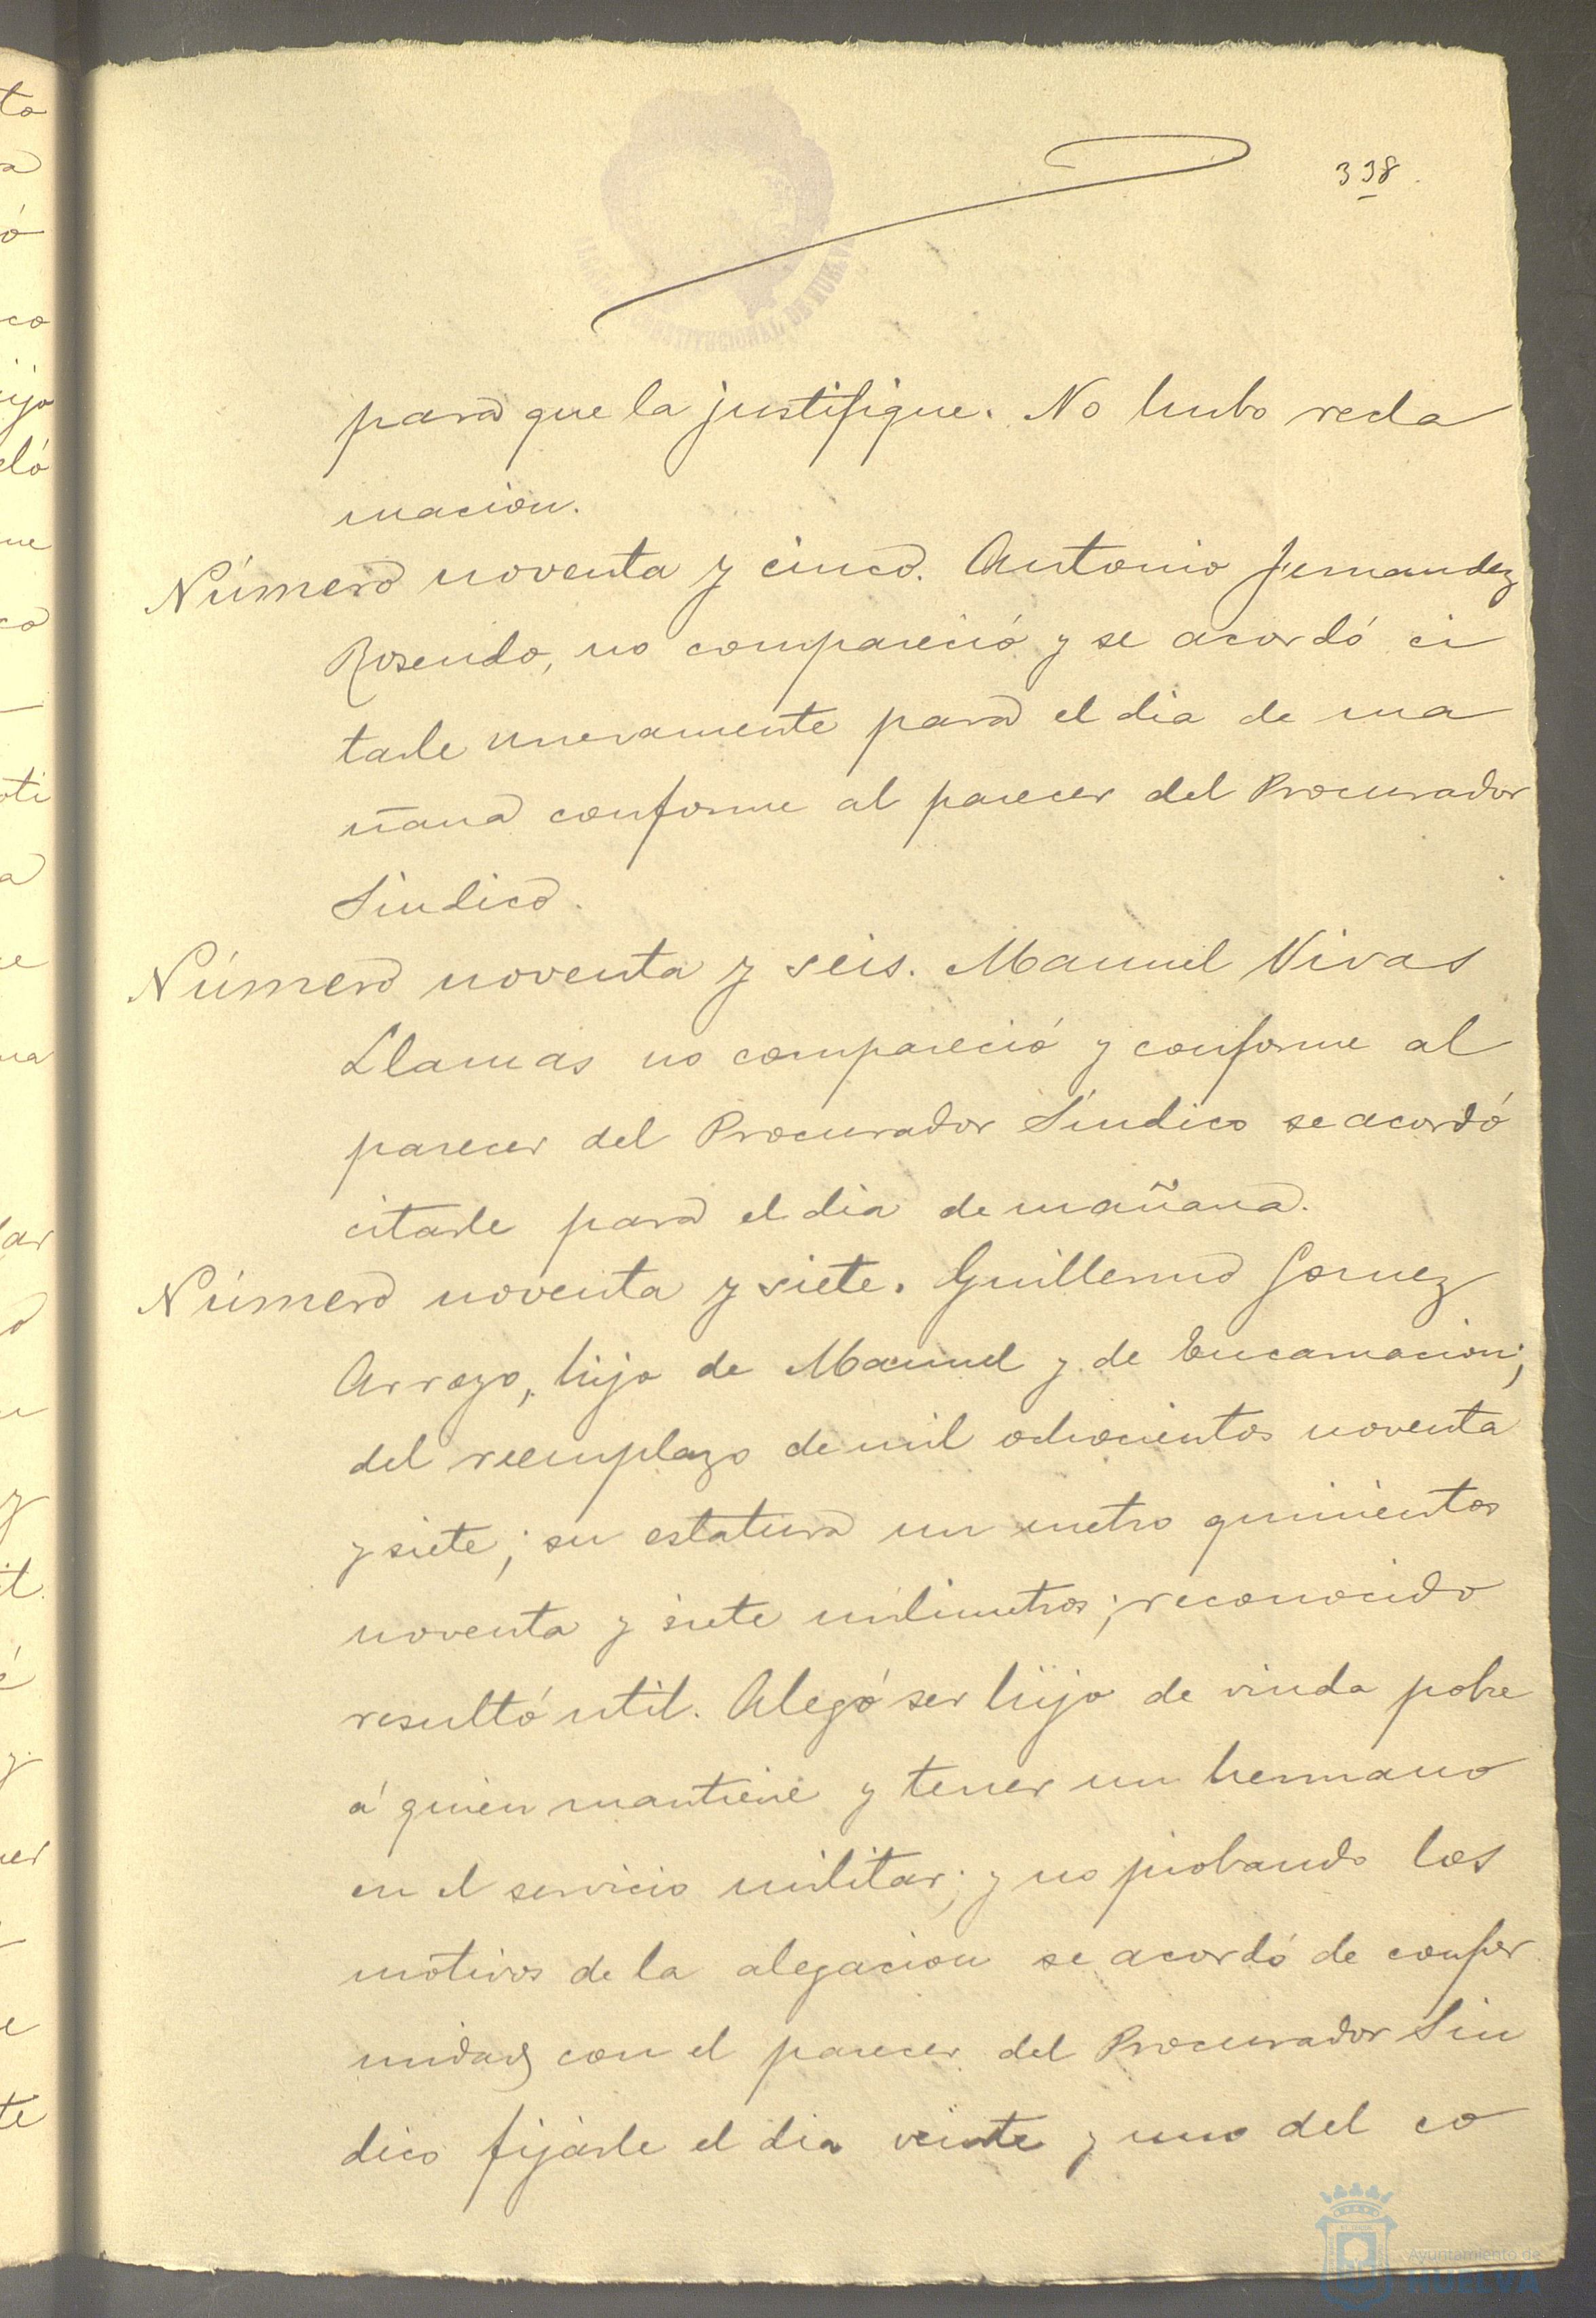 338
CONSTITUCIONAL DE HUELVA
para que la justifique. No hubo recla
macion.
Número noventa y cinco. Antonio Fernandez
Rosendo, no compareció y se acordó ci
tarle nuevamente para el dia de ma
ñana conforme al parecer del Procurador
Sindico.
Número noventa y seis. Manuel Vivas
Llamas no compareció y conforme al
parecer del Procurador Síndico se acordó
citarle para el dia de mañana.
Número noventa y siete. Guillermo Gomez
Arroyo, hijo de Manuel y de Encarnacion;
del reemplazo de mil ochocientos noventa
y siete; su estatura un metro quinientos
noventa y siete milimetros; reconocido
resultó util. Alegó ser hijo de viuda pobre
á quien mantiene y tener un hermano
en el servicio militar; y no probando los
motivos de la alegacion se acordó de confor
midad con el parecer del Procurador Sin
dico fijarle el dia veinte y uno del co
Ayuntamiento de
HUELVA